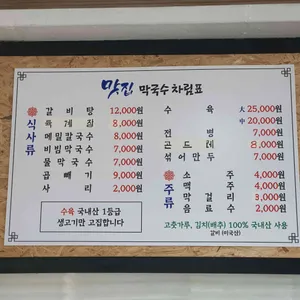 맛진 막국수차림표
식사류
갈비탕 12,000원
육계장 8,000원
메밀칼국수 8,000원
비빔막국수 7,000원
물막국수 7,000원
곱빼기 9,000원
사리 2,000원
수육 大 25,000원
中 20,000원
전병 7,000원
곤드레 8,000원
섞어만두 7,000원
주류
소주 4,000원
맥주 4,000원
막걸리 3,000원
음료수 2,000원
수육 국내산 1등급
생고기만 고집합니다
고춧가루, 김치(배추) 100% 국내산 사용
갈비 (미국산)